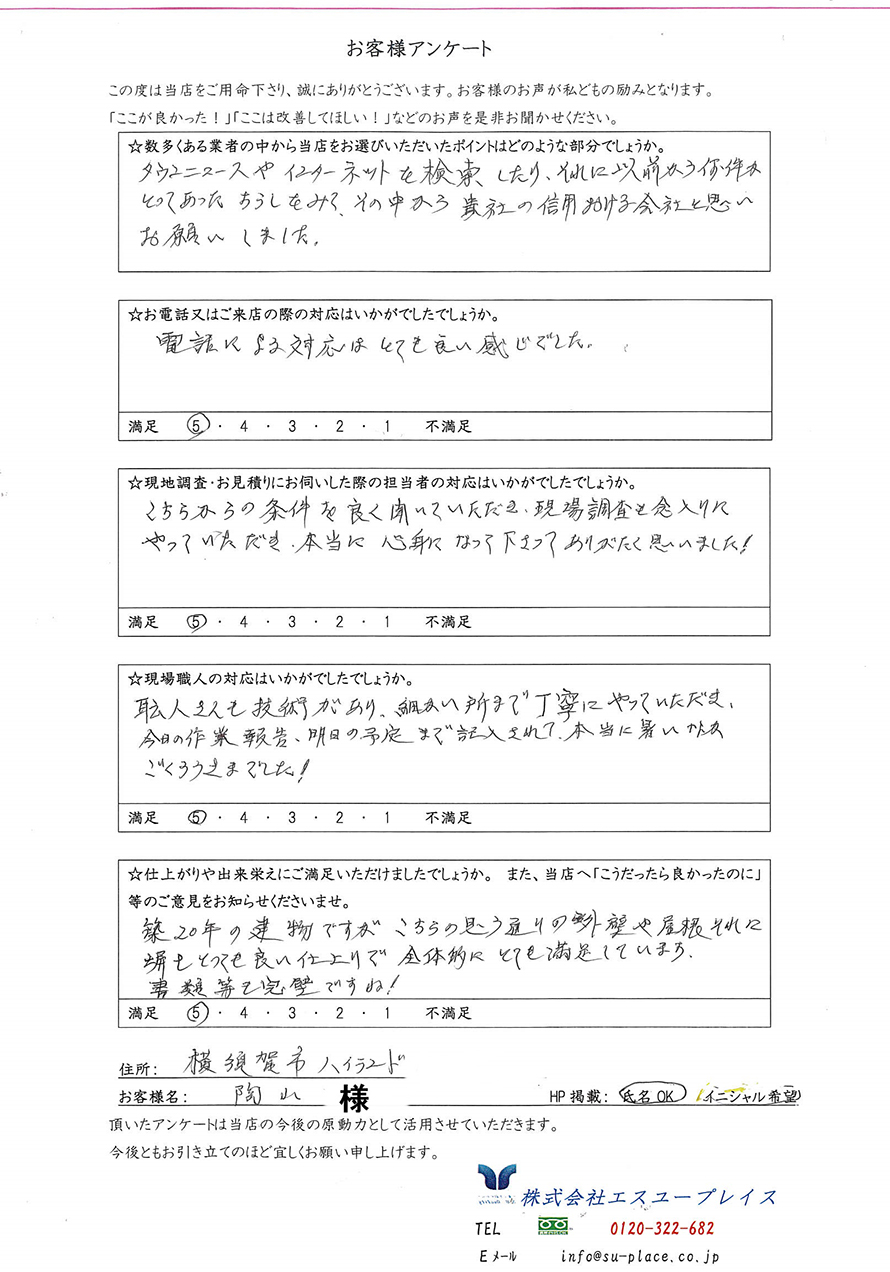 お客様アンケート
この度は当店をご用命下さり、誠にありがとうございます。お客様のお声が私どもの励みとなります。
「ここが良かった！」「ここは改善してほしい！」などのお声を是非お聞かせください。
☆数多くある業者の中から当店をお選びいただいたポイントはどのような部分でしょうか。
タウンニュースやインターネットを検索したり、それに以前から何件か
とってあったちらしをみて、その中から貴社の信用おける会社と思い
お願いしました。
☆お電話又はご来店の際の対応はいかがでしたでしょうか。
電話による対応はとても良い感じでした。
満足 5 ・ 4 ・ 3 ・ 2 ・ 1 不満足
☆現地調査・お見積りにお伺いした際の担当者の対応はいかがでしたでしょうか。
こちらからの条件を良く聞いていただき、現場調査も念入りに
やっていただき、本当に心身になって下さってありがたく思いました！
満足 5 ・ 4 ・ 3 ・ 2 ・ 1 不満足
☆現場職人の対応はいかがでしたでしょうか。
職人さんも技術があり、細かい所まで丁寧にやっていただき、
今日の作業報告、明日の予定まで記入されて、本当に暑いなか
ごくろうさまでした！
満足 5 ・ 4 ・ 3 ・ 2 ・ 1 不満足
☆仕上がりや出来栄えにご満足いただけましたでしょうか。 また、当店へ「こうだったら良かったのに」
等のご意見をお知らせくださいませ。
築20年の建物ですがこちらの思う通りの外壁や屋根それに
塀もとっても良い仕上りで全体的にとても満足しています。
書類等も完璧ですね！
満足 5 ・ 4 ・ 3 ・ 2 ・ 1 不満足
住所： 横須賀市ハイランド
お客様名： 陶山 様 HP掲載： 氏名OK / イニシャル希望
頂いたアンケートは当店の今後の原動力として活用させていただきます。
今後ともお引き立てのほど宜しくお願い申し上げます。
株式会社エスユープレイス
TEL 0120-322-682
Eメール info@su-place.co.jp